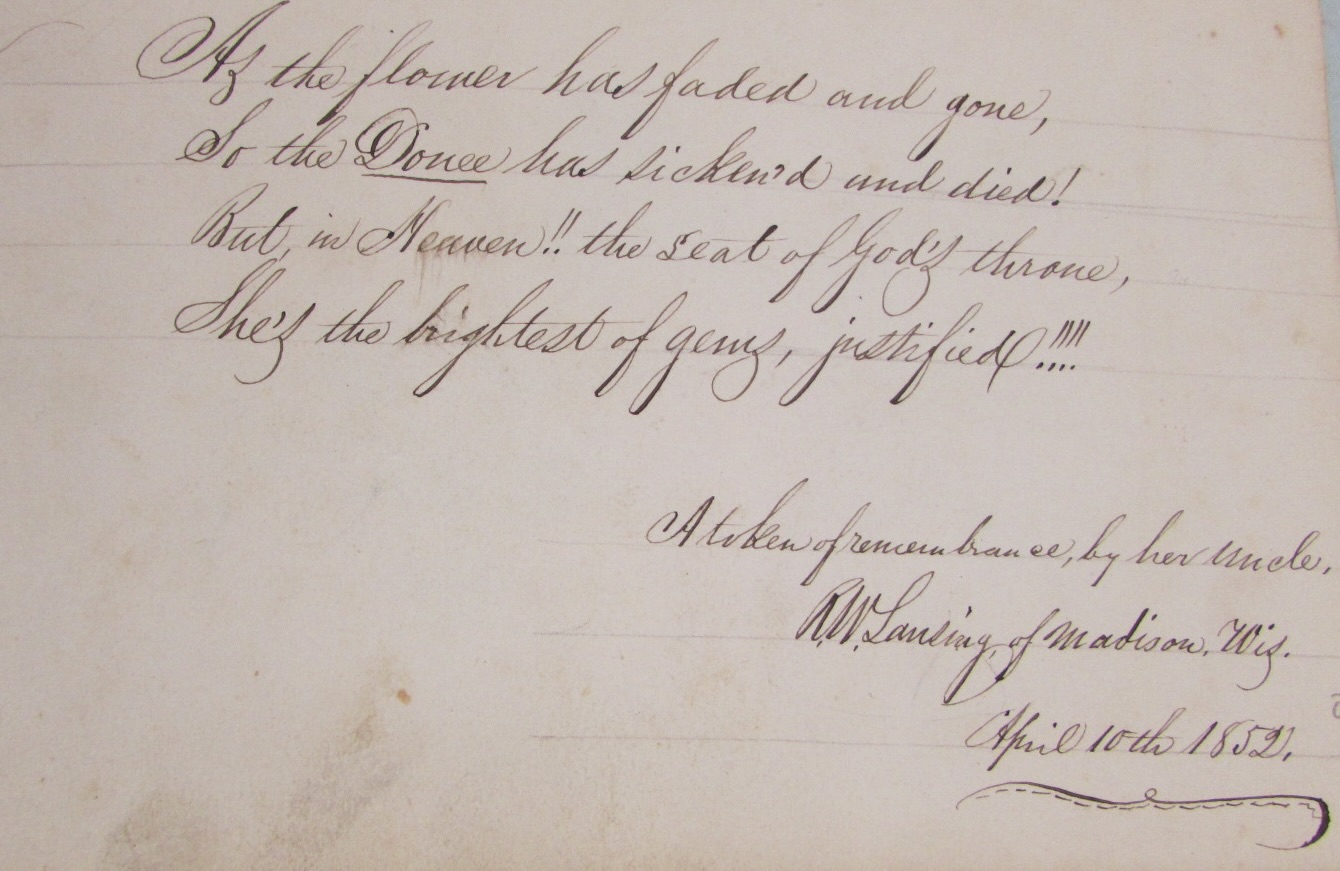 As the flower has faded and gone,
So the Donee has sicken'd and died!
But, in Heaven!! the seat of God's throne,
She's the brightest of gems, justified!!!!
A token of remembrance, by her uncle,
R.W. Lansing, of Madison, Wis.
April 10th 1852.